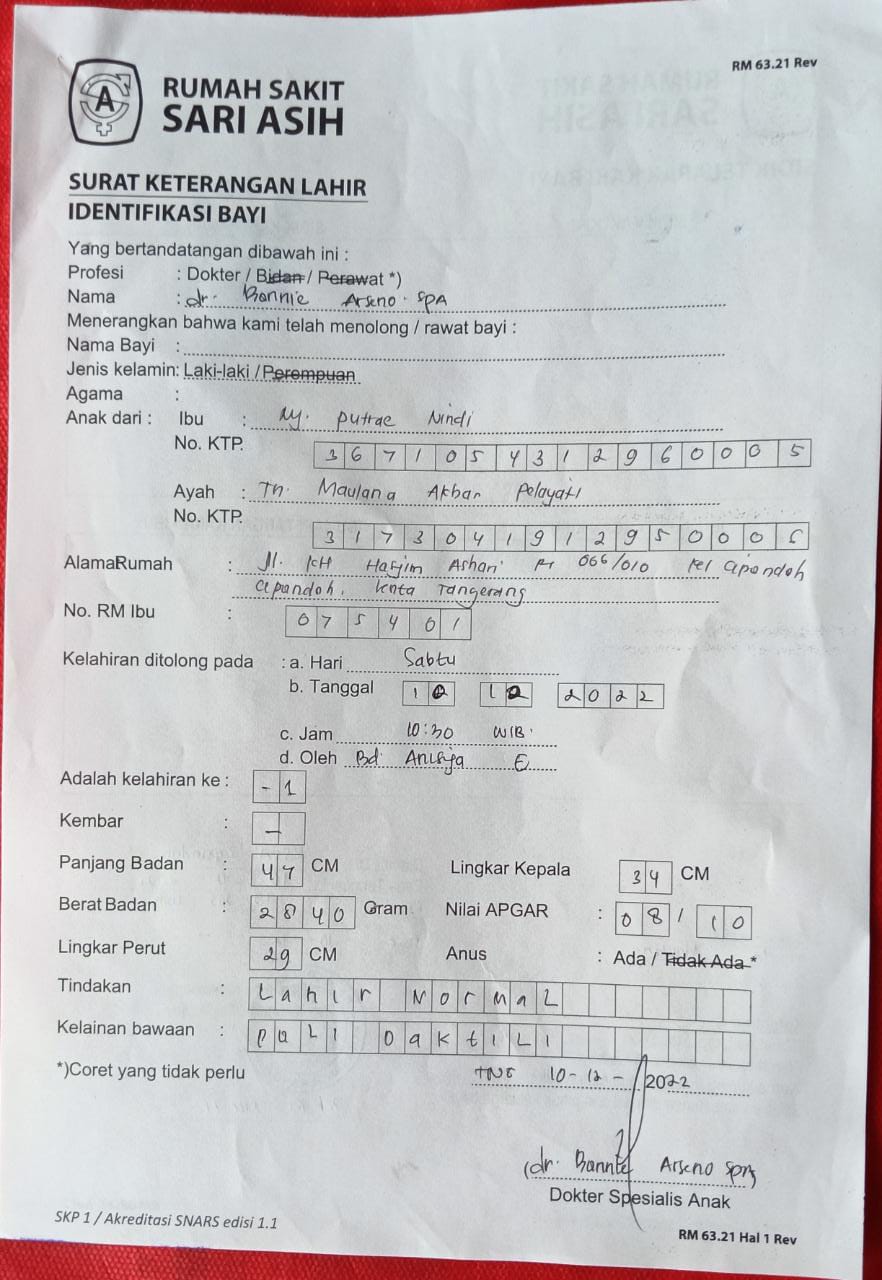 RM 63.21 Rev
A
RUMAH SAKIT
SARI ASIH
SURAT KETERANGAN LAHIR
IDENTIFIKASI BAYI
Yang bertandatangan dibawah ini :
Profesi : Dokter / Bidan / Perawat *)
Nama : dr. Bonnie Arseno. SPA
Menerangkan bahwa kami telah menolong / rawat bayi :
Nama Bayi :
Jenis kelamin: Laki-laki / Perempuan
Agama :
Anak dari : Ibu : Ny. Putrae Nindi
No. KTP. 3671054312960005
Ayah : Tn. Maulana Akbar Pelayati
No. KTP. 3173041912950005
AlamaRumah : Jl. KH Hasjim Ashari Rt 006/010 kel cipondoh
cipondoh, kota Tangerang
No. RM Ibu : 075401
Kelahiran ditolong pada : a. Hari Sabtu
b. Tanggal 10 12 2022
c. Jam 10:30 WIB.
d. Oleh Bd. E
Adalah kelahiran ke : - 1
Kembar : –
Panjang Badan : 47 CM Lingkar Kepala 34 CM
Berat Badan : 2840 Gram Nilai APGAR : 08 / 10
Lingkar Perut : 29 CM Anus : Ada / Tidak Ada *
Tindakan : Lahir Normal
Kelainan bawaan : poli daktili
*)Coret yang tidak perlu
TNG 10-12-2022
(dr. Bonnie Arseno SpA)
Dokter Spesialis Anak
SKP 1 / Akreditasi SNARS edisi 1.1
RM 63.21 Hal 1 Rev